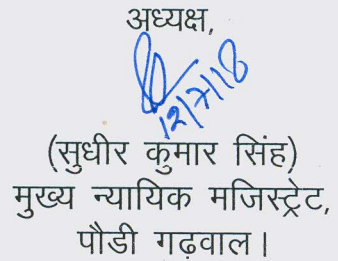 अध्यक्ष,
12/7/18
(सुधीर कुमार सिंह)
मुख्य न्यायिक मजिस्ट्रेट,
पौडी गढवाल।